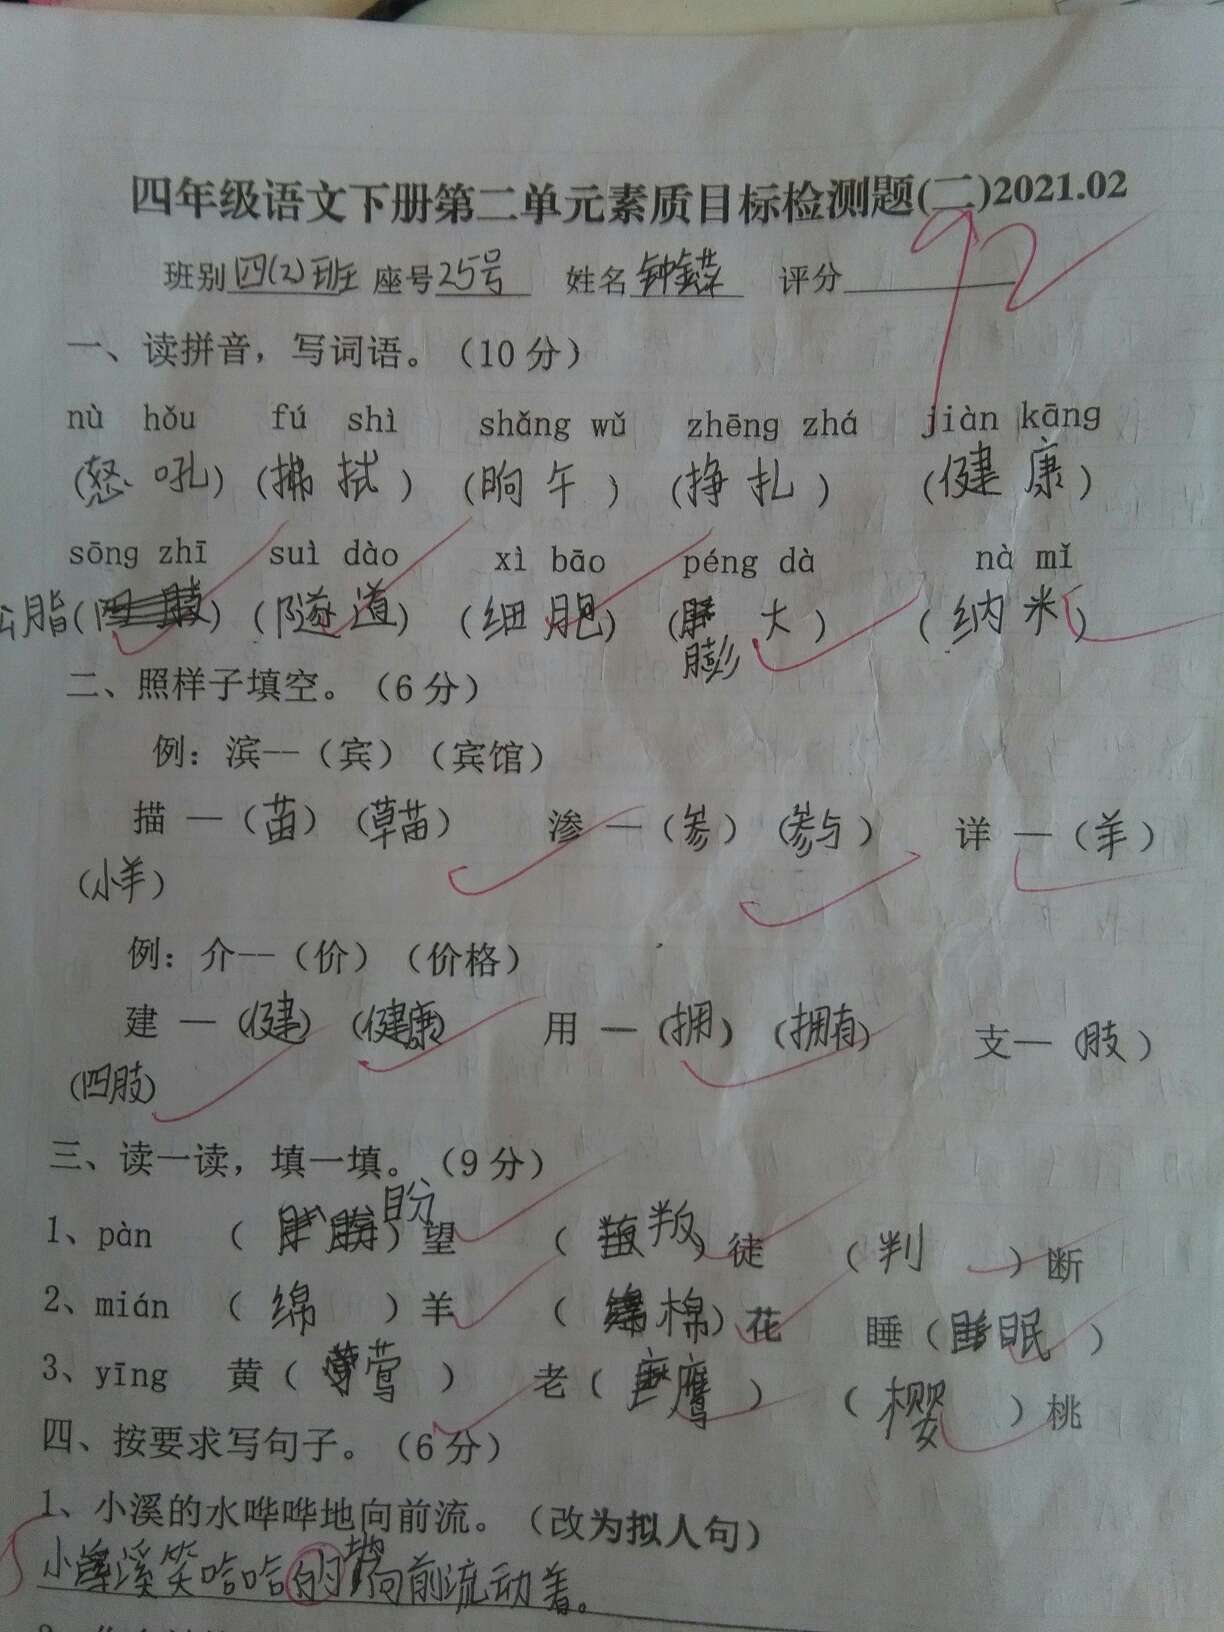 四年级语文下册第二单元素质目标检测题(二)2021.02
92
班别四(2)班 座号25号 姓名 钟 评分
一、读拼音，写词语。（10分）
nù hǒu fú shì shǎng wǔ zhēng zhá jiàn kāng
(怒吼) (拂拭) (晌午) (挣扎) (健康)
sōng zhī suì dào xì bāo péng dà nà mǐ
脂( ) (隧道) (细胞) ( 大) (纳米)
膨
二、照样子填空。（6分）
例：滨--（宾）（宾馆）
描 —（苗）（草苗） 渗 —（参）（参与） 详 —（羊）
(小羊)
例：介--（价）（价格）
建 —（健）（健康） 用 —（拥）（拥有） 支—（肢）
(四肢)
三、读一读，填一填。（9分）
1、pàn （ 盼）望 （ 叛）徒 （判 ）断
2、mián （ 绵 ）羊 （ 棉）花 睡（ 眠 ）
3、yīng 黄（ 莺 ） 老（ 鹰 ） （ 樱 ）桃
四、按要求写句子。（6分）
1、小溪的水哗哗地向前流。（改为拟人句）
小溪笑哈哈的向前流动着。